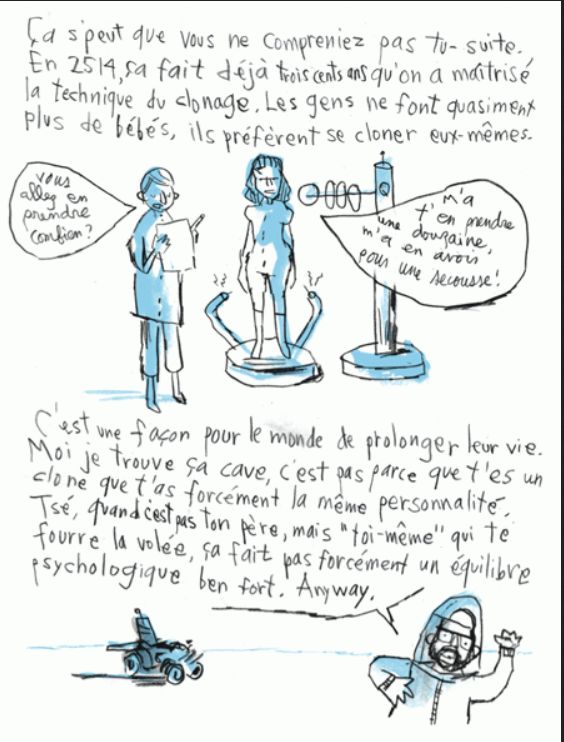 Ça s'peut que vous ne compreniez pas tu-suite.
En 2514, ça fait déjà trois cents ans qu'on a maîtrisé
la technique du clonage. Les gens ne font quasiment
plus de bébés, ils préfèrent se cloner eux-mêmes.
vous
allez en
prendre
combien?
m'a
t'en prendre
une douzaine,
m'a en avoir
pour une secousse!
C'est une façon pour le monde de prolonger leur vie.
Moi je trouve ça cave, c'est pas parce que t'es un
clone que t'as forcément la même personnalité.
Tsé, quand c'est pas ton père, mais "toi-même" qui te
fourre la volée, ça fait pas forcément un équilibre
psychologique ben fort. Anyway.